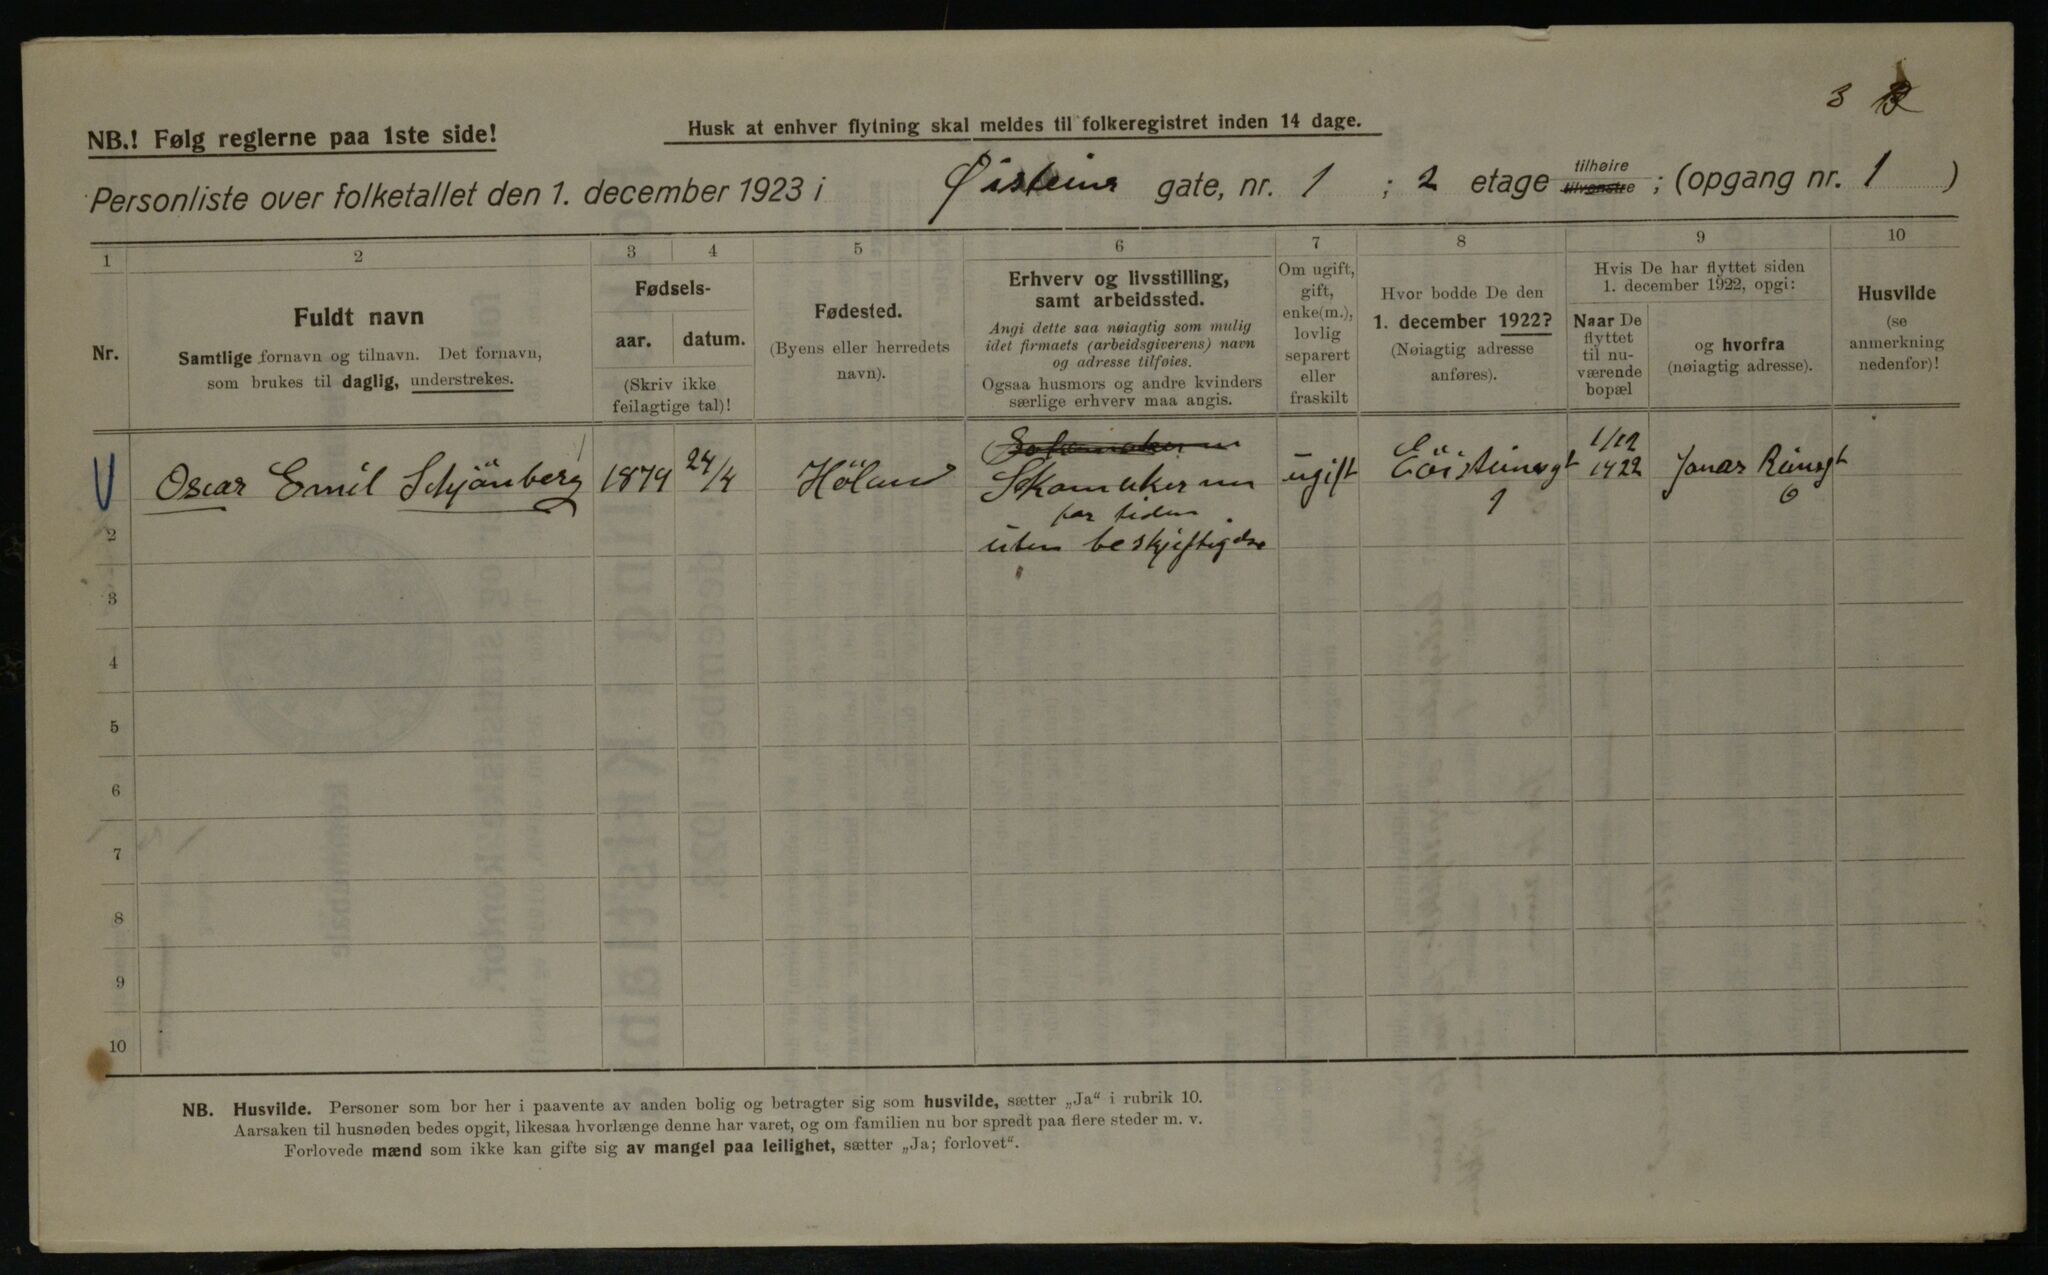 3
NB.! Følg reglerne paa 1ste side!
Husk at enhver flytning skal meldes til folkeregistret inden 14 dage.
Personliste over folketallet den 1. december 1923 i Øisteins gate, nr. 1 ; 2 etage tilhøire tilvenstre ; (opgang nr. 1 )
1 2 3 4 5 6 7 8 9 10
Nr.
Fuldt navn
Samtlige fornavn og tilnavn. Det fornavn,
som brukes til daglig, understrekes.
Fødsels-
aar. datum.
(Skriv ikke
feilagtige tal)!
Fødested.
(Byens eller herredets
navn).
Erhverv og livsstilling,
samt arbeidssted.
Angi dette saa nøiagtig som mulig
idet firmaets (arbeidsgiverens) navn
og adresse tilføies.
Ogsaa husmors og andre kvinders
særlige erhverv maa angis.
Om ugift,
gift,
enke(m.),
lovlig
separert
eller
fraskilt
Hvor bodde De den
1. december 1922?
(Nøiagtig adresse
anføres).
Hvis De har flyttet siden
1. december 1922, opgi:
Naar De
flyttet
til nu-
værende
bopæl
og hvorfra
(nøiagtig adresse).
Husvilde
(se
anmerkning
nedenfor)!
Oscar Emil Schjönberg 1879 24/4 Höland
Skomaker
for tiden
uten beskjeftigelse
ugift
1
1/12
1922
6
2
3
4
5
6
7
8
9
10
NB. Husvilde. Personer som bor her i paavente av anden bolig og betragter sig som husvilde, sætter „Ja" i rubrik 10.
Aarsaken til husnøden bedes opgit, likesaa hvorlænge denne har varet, og om familien nu bor spredt paa flere steder m. v.
Forlovede mænd som ikke kan gifte sig av mangel paa leilighet, sætter „Ja; forlovet".